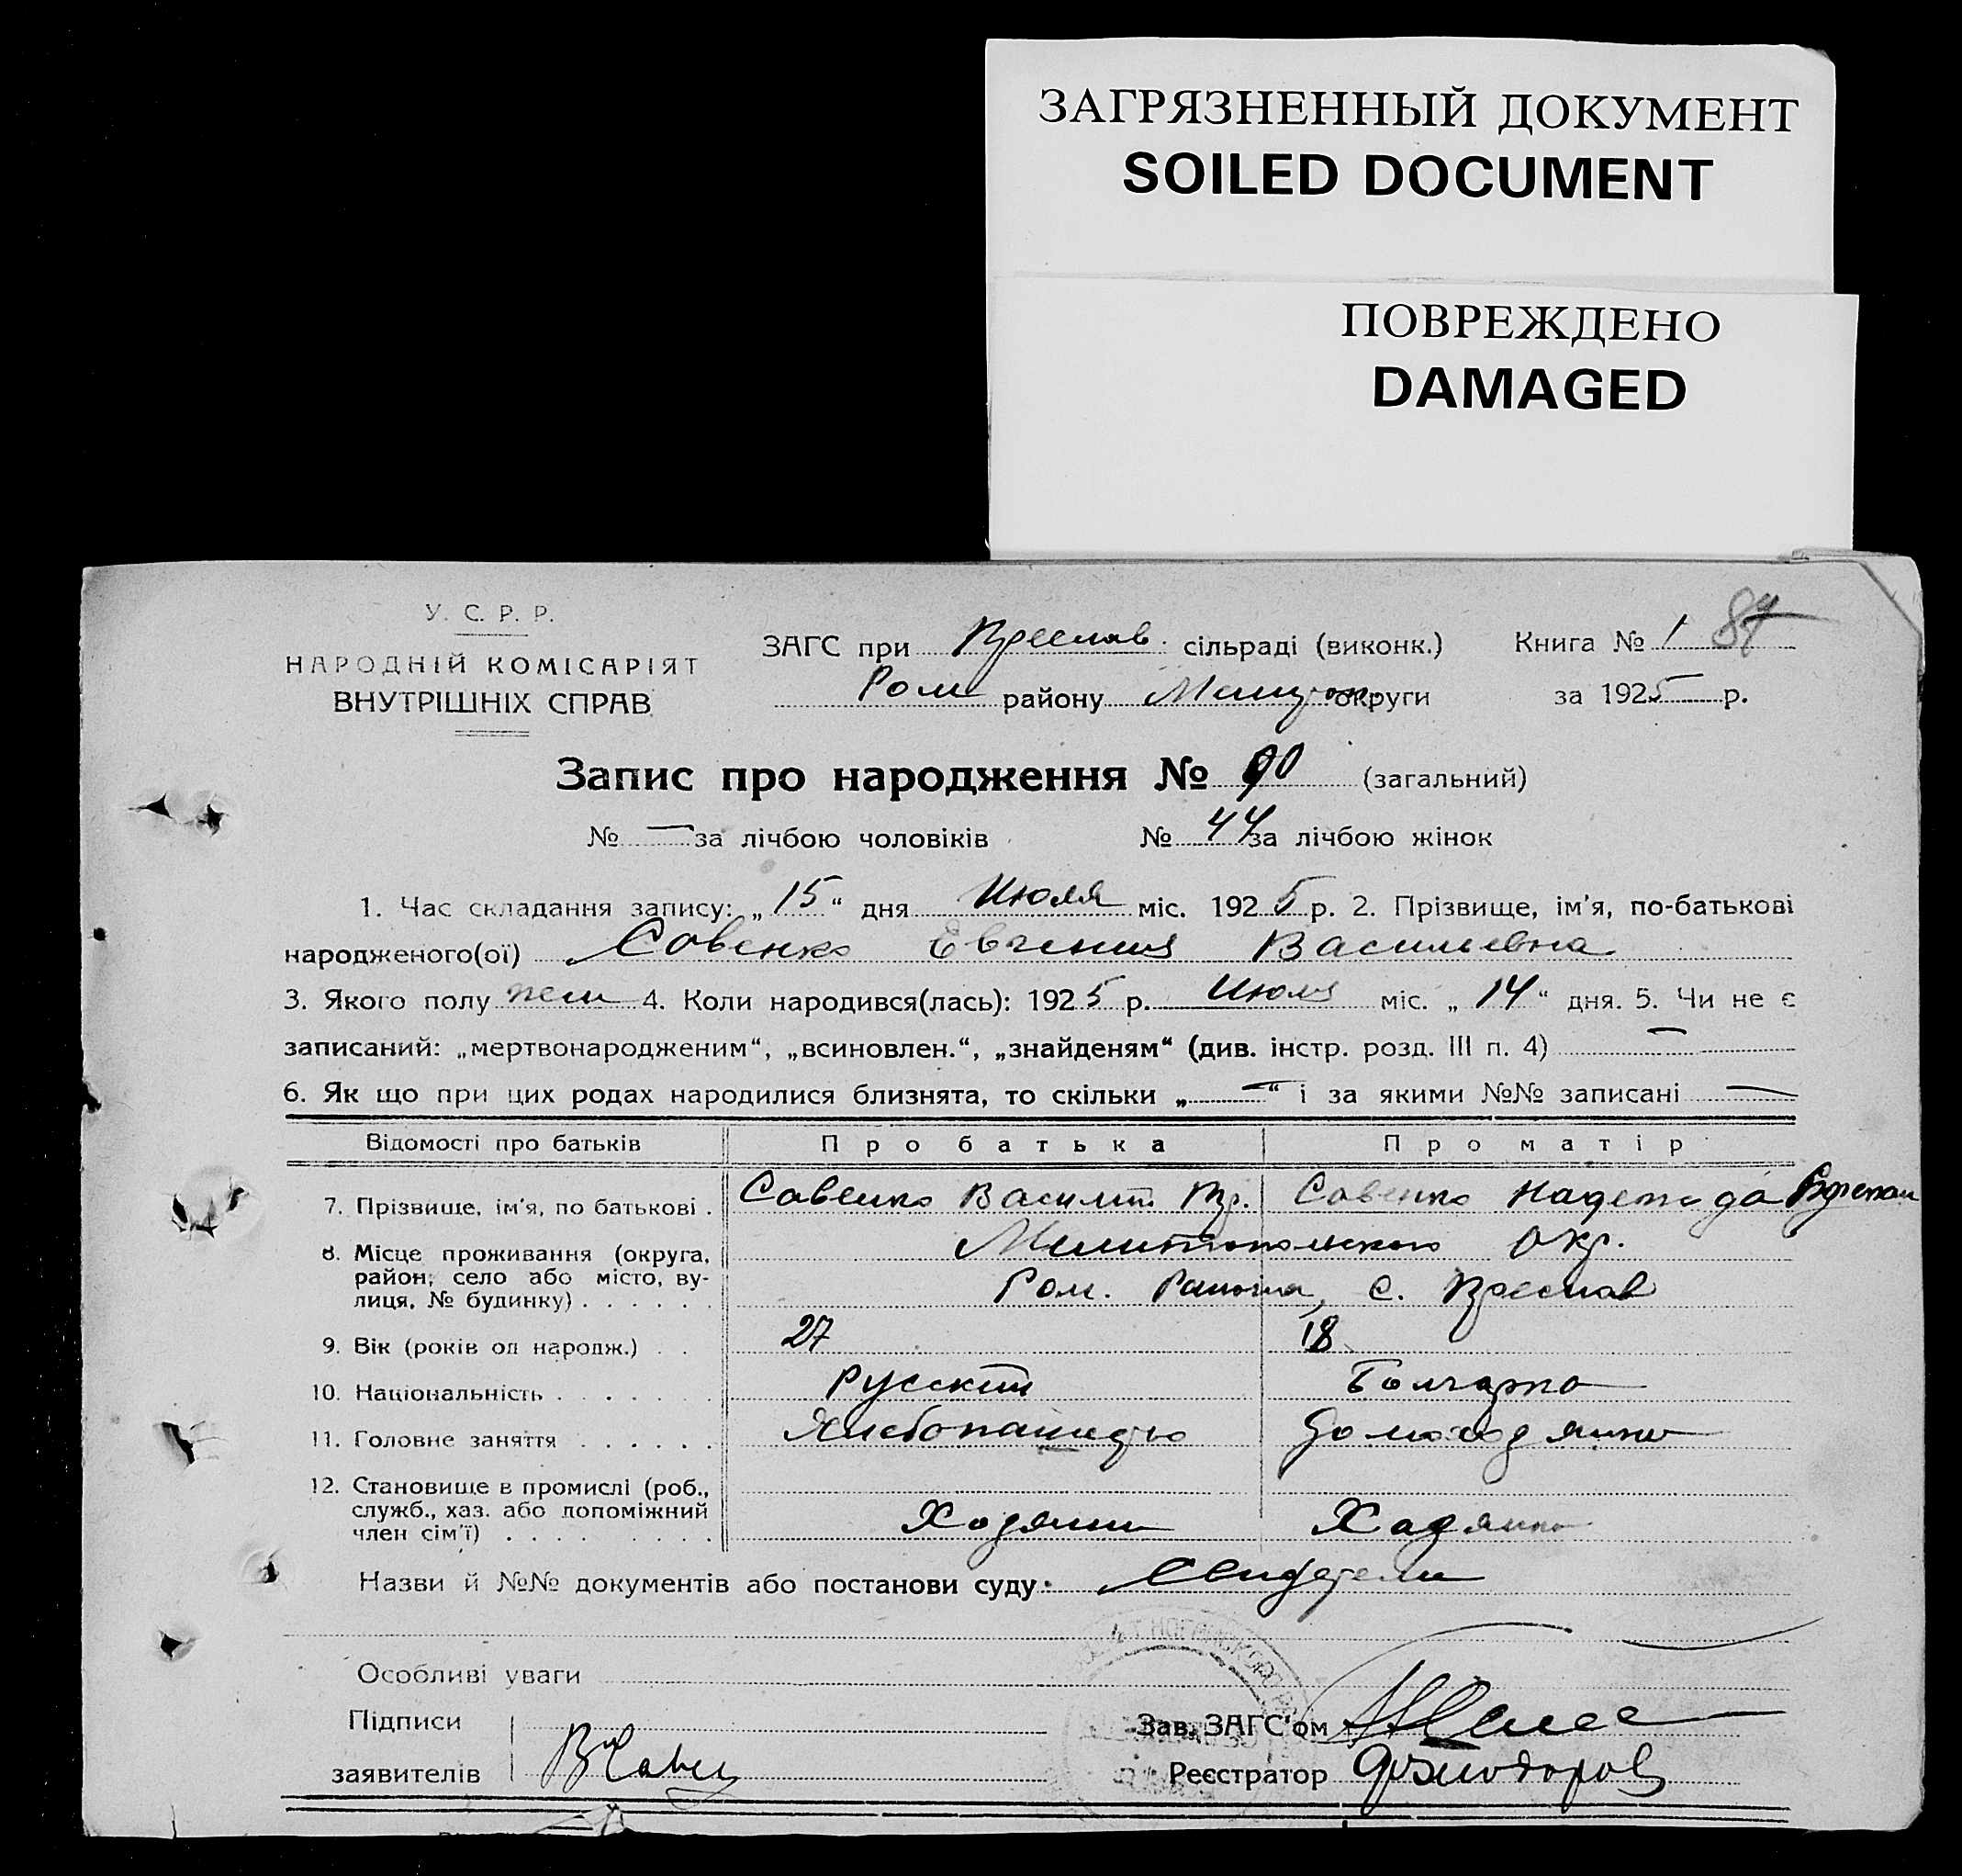 ЗАГРЯЗНЕННЫЙ ДОКУМЕНТ
SOILED DOCUMENT
ПОВРЕЖДЕНО
DAMAGED
У. С. Р. Р.
НАРОДНІЙ КОМІСАРІЯТ
ВНУТРІШНІХ СПРАВ
ЗАГС при Преслав. сільраді (виконк.) Книга № 1 87
Ром району округи за 1925 р.
Запис про народження № 90 (загальний)
№ — за лічбою чоловіків № 44 за лічбою жінок
1. Час складання запису: „15“ дня Июля міс. 1925 р. 2. Прізвище, ім'я, по-батькові
народженого(ої) Савенко Евгения Васильевна
3. Якого полу жен 4. Коли народився(лась): 1925 р. Июля міс. „14“ дня. 5. Чи не є
записаний: „мертвонародженим“, „всиновлен.“, „знайденям“ (див. інстр. розд. III п. 4) —
6. Як що при цих родах народилися близнята, то скільки „—“ і за якими №№ записані —
Відомості про батьків Про батька Про матір
7. Прізвище, ім'я, по батькові . Савенко Василий Савенко Надежда
8. Місце проживання (округа, Мелитопольского Окр.
район, село або місто, ву-
лиця, № будинку) . . . . . . Ром. Района, с. Преслав
9. Вік (років од народж.) . . 27 18
10. Національність . . . . . . Русский Болгарка
11. Головне заняття . . . . . . Хлебопашество
12. Становище в промислі (роб.,
служб., хаз. або допоміжний
член сім'ї) . . . . . . . .
Назви й №№ документів або постанови суду: Свидетели
Особливі уваги
Підписи Зав. ЗАГС'ом
заявителів Реєстратор